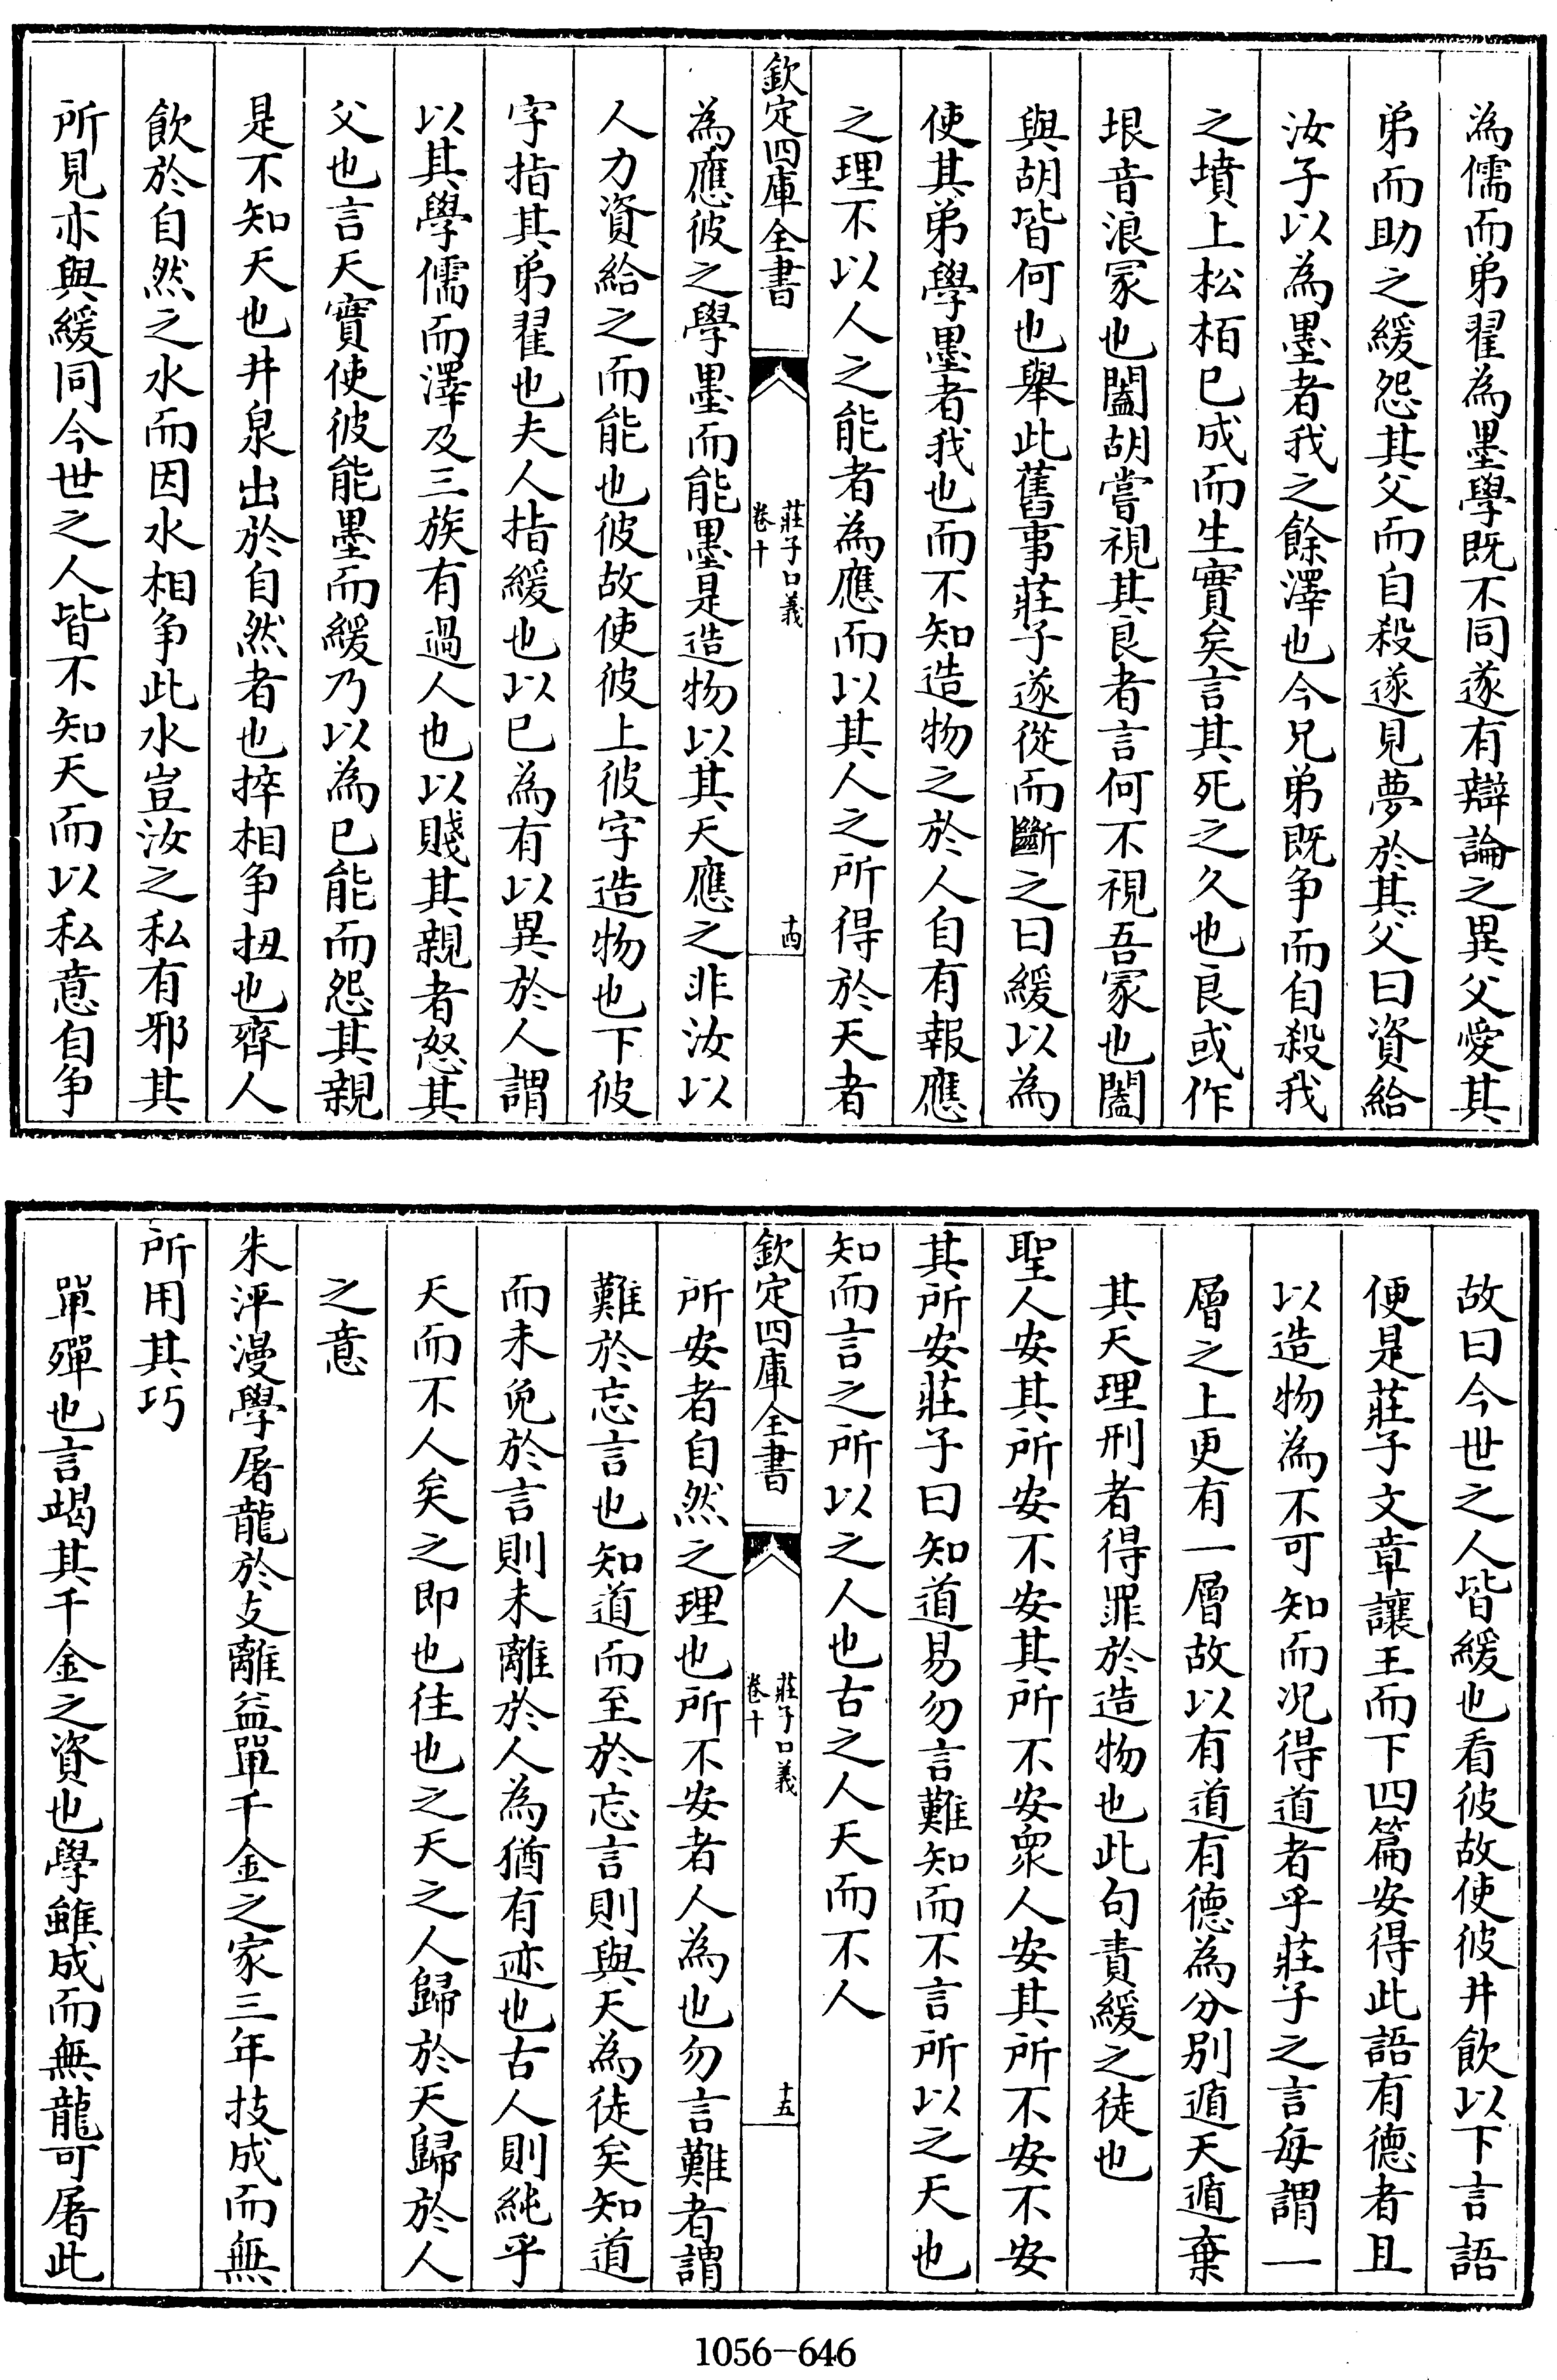 為儒而弟翟為墨學既不同遂有辯論之異父愛其
弟而助之緩怨其父而自殺遂見夢於其父曰資給
汝子以為墨者我之餘澤也今兄弟既争而自殺我
之墳上松栢已成而生實矣言其死之久也良或作
埌音浪冢也闔胡嘗視其良者言何不視吾冢也闔
與胡皆何也舉此舊事莊子遂從而斷之曰緩以為
使其弟學墨者我也而不知造物之於人自有報應
之理不以人之能者為應而以其人之所得於天者
欽定四庫全書
莊子口義
卷十
十四
為應彼之學墨而能墨是造物以其天應之非汝以
人力資給之而能也彼故使彼上彼字造物也下彼
字指其弟翟也夫人指緩也以已為有以異於人謂
以其學儒而澤及三族有過人也以賤其親者怒其
父也言天實使彼能墨而緩乃以為已能而怨其親
是不知天也井泉出於自然者也捽相争扭也齊人
飲於自然之水而因水相争此水豈汝之私有邪其
所見亦與緩同今世之人皆不知天而以私意自争
故曰今世之人皆緩也看彼故使彼井飲以下言語
便是莊子文章讓王而下四篇安得此語有德者且
以造物為不可知而况得道者乎莊子之言每謂一
層之上更有一層故以有道有德為分别遁天遁棄
其天理刑者得罪於造物也此句責緩之徒也
聖人安其所安不安其所不安衆人安其所不安不安
其所安莊子曰知道易勿言難知而不言所以之天也
知而言之所以之人也古之人天而不人
欽定四庫全書
莊子口義
卷十
十五
所安者自然之理也所不安者人為也勿言難者謂
難於忘言也知道而至於忘言則與天為徒矣知道
而未免於言則未離於人為猶有迹也古人則純乎
天而不人矣之即也往也之天之人歸於天歸於人
之意
朱泙漫學屠龍於支離益單千金之家三年技成而無
所用其巧
單殫也言竭其千金之資也學雖成而無龍可屠此
1056-646